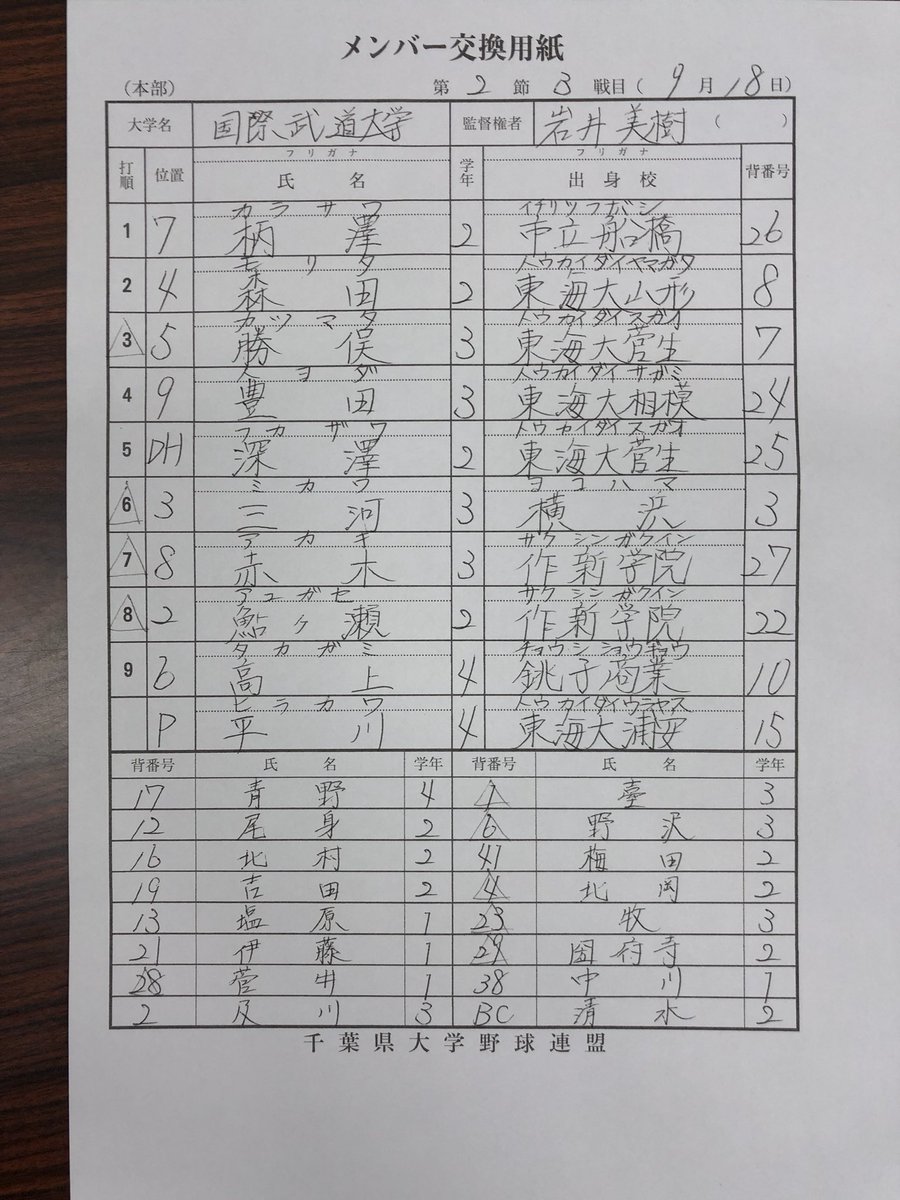 メンバー交換用紙
（本部） 第 2 節 3 戦目（ 9 月 18 日）
大学名 国際武道大学 監督権者 岩井美樹 （ ）
打順 位置 フリガナ 氏名 学年 フリガナ 出身校 背番号
カラサワ イチリツフナバシ
1 7 柄澤 2 市立船橋 26
モリタ トウカイダイヤマガタ
2 4 森田 2 東海大山形 8
カツマタ トウカイダイスガオ
3 5 勝俣 3 東海大菅生 7
トヨダ トウカイダイサガミ
4 9 豊田 3 東海大相模 24
フカザワ トウカイダイスガオ
5 DH 深澤 2 東海大菅生 25
ミカワ ヨコハマ
6 3 三河 3 横浜 3
アカギ サクシンガクイン
7 8 赤木 3 作新学院 27
アユガセ サクシンガクイン
8 2 鮎ケ瀬 2 作新学院 22
タカガミ チョウシショウギョウ
9 6 高上 4 銚子商業 10
ヒラカワ トウカイダイウラヤス
P 平川 4 東海大浦安 15
背番号 氏名 学年 背番号 氏名 学年
17 青野 4 1 臺 3
12 尾身 2 6 野沢 3
16 北村 2 41 梅田 2
19 吉田 2 4 北岡 2
13 塩原 1 23 牧 3
21 伊藤 1 29 国府寺 2
28 菅井 1 38 中川 1
2 及川 3 BC 清水 2
千葉県大学野球連盟